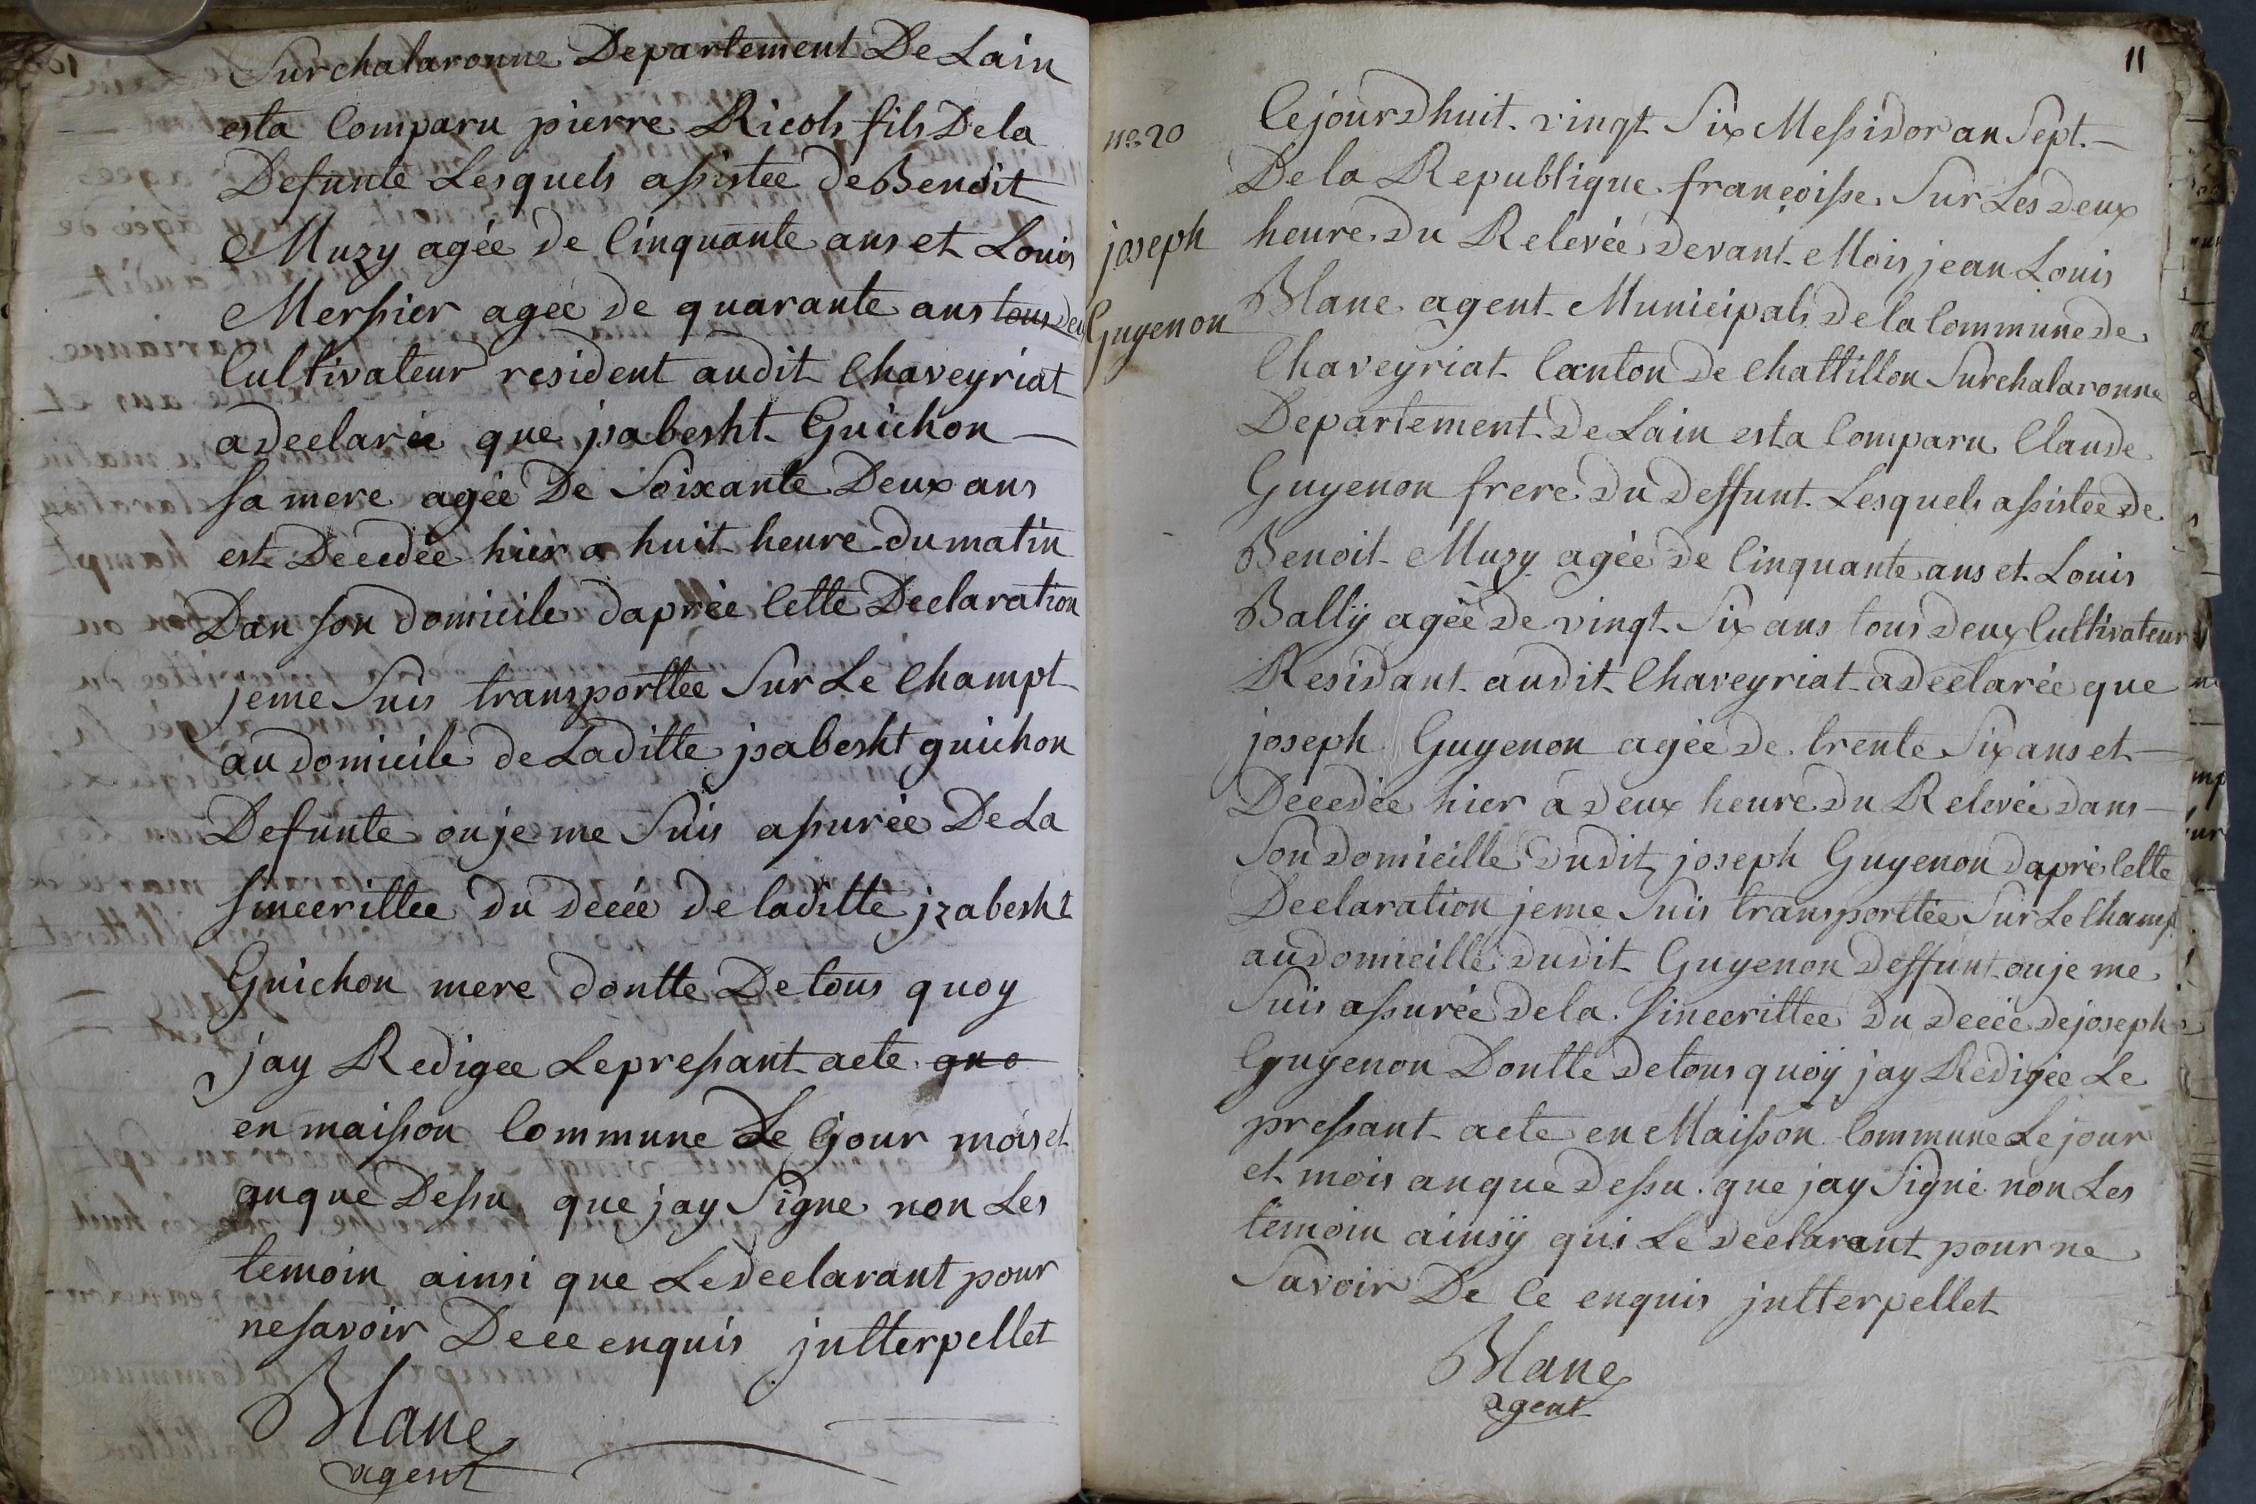 Surchalaronne Departement De Lain
esta Comparu pierre Ricols fils Dela
Defunte Lesquels assistée de Benoit
Muzy agée de Cinquante ans et Louis
Messier agée de quarante ans tous deu
Cultivateur resident audit Chaveyriat
adeclarée que jsabesht Guichon
sa mere agée De Soixante Deux ans
est Decedée hier a huit heure du matin
Dan son domicile daprée Cette Declaration
jeme Suis transporttée Sur Le Champt
au domicile de Laditte jsabesht guichon
Defunte ou je me Suis assurée De La
sinceerittee du decée de laditte jzabesht
Guichon mere dontte De tous quoy
jay Redigee Le pressant acte que
en maisson Commune Le Cjour mois et
anque Dessu que jay Signe non Les
temoin ainsi que Le declarant pour
ne savoir Dece enquis jntterpellet
Blanc
agent
11
no. 20
joseph
Guyenon
Cejourdhuit vingt Six Messidor an Sept.
De la Republique francoisse Sur Les deux
heure du Relevée devant Mois jean Louis
Blanc agent Municipals de la Commune de
Chaveyriat Canton de Chattillon Surchalaronne
Departement de Lain esta Comparu Claude
Guyenon frere du deffunt Lesquels assistée de
Benoit Muzy agée de Cinquante ans et Louis
Bally agée de vingt Six ans tous deux Cultivateur
Residant audit Chaveyriat adeclarée que
joseph Guyenon agée de trente Six ans et
Decedée hier a deux heure du Relevée dans
Son domicille dudit joseph Guyenon daprè Cette
Declaration jeme Suis transporttée Sur Le Champ
au domicille dudit Guyenon deffunt ou je me
Suis assurée de la sinceerittee du decée de joseph
Guyenon Dontte detous quoÿ jay Redigée Le
pressant acte en Maisson Commune Le jour
et mois anque dessu que jay Signé non Les
temoin ainsÿ qui Le declarant pour ne
Savoir De Ce enquis jntterpellet
Blanc
agent